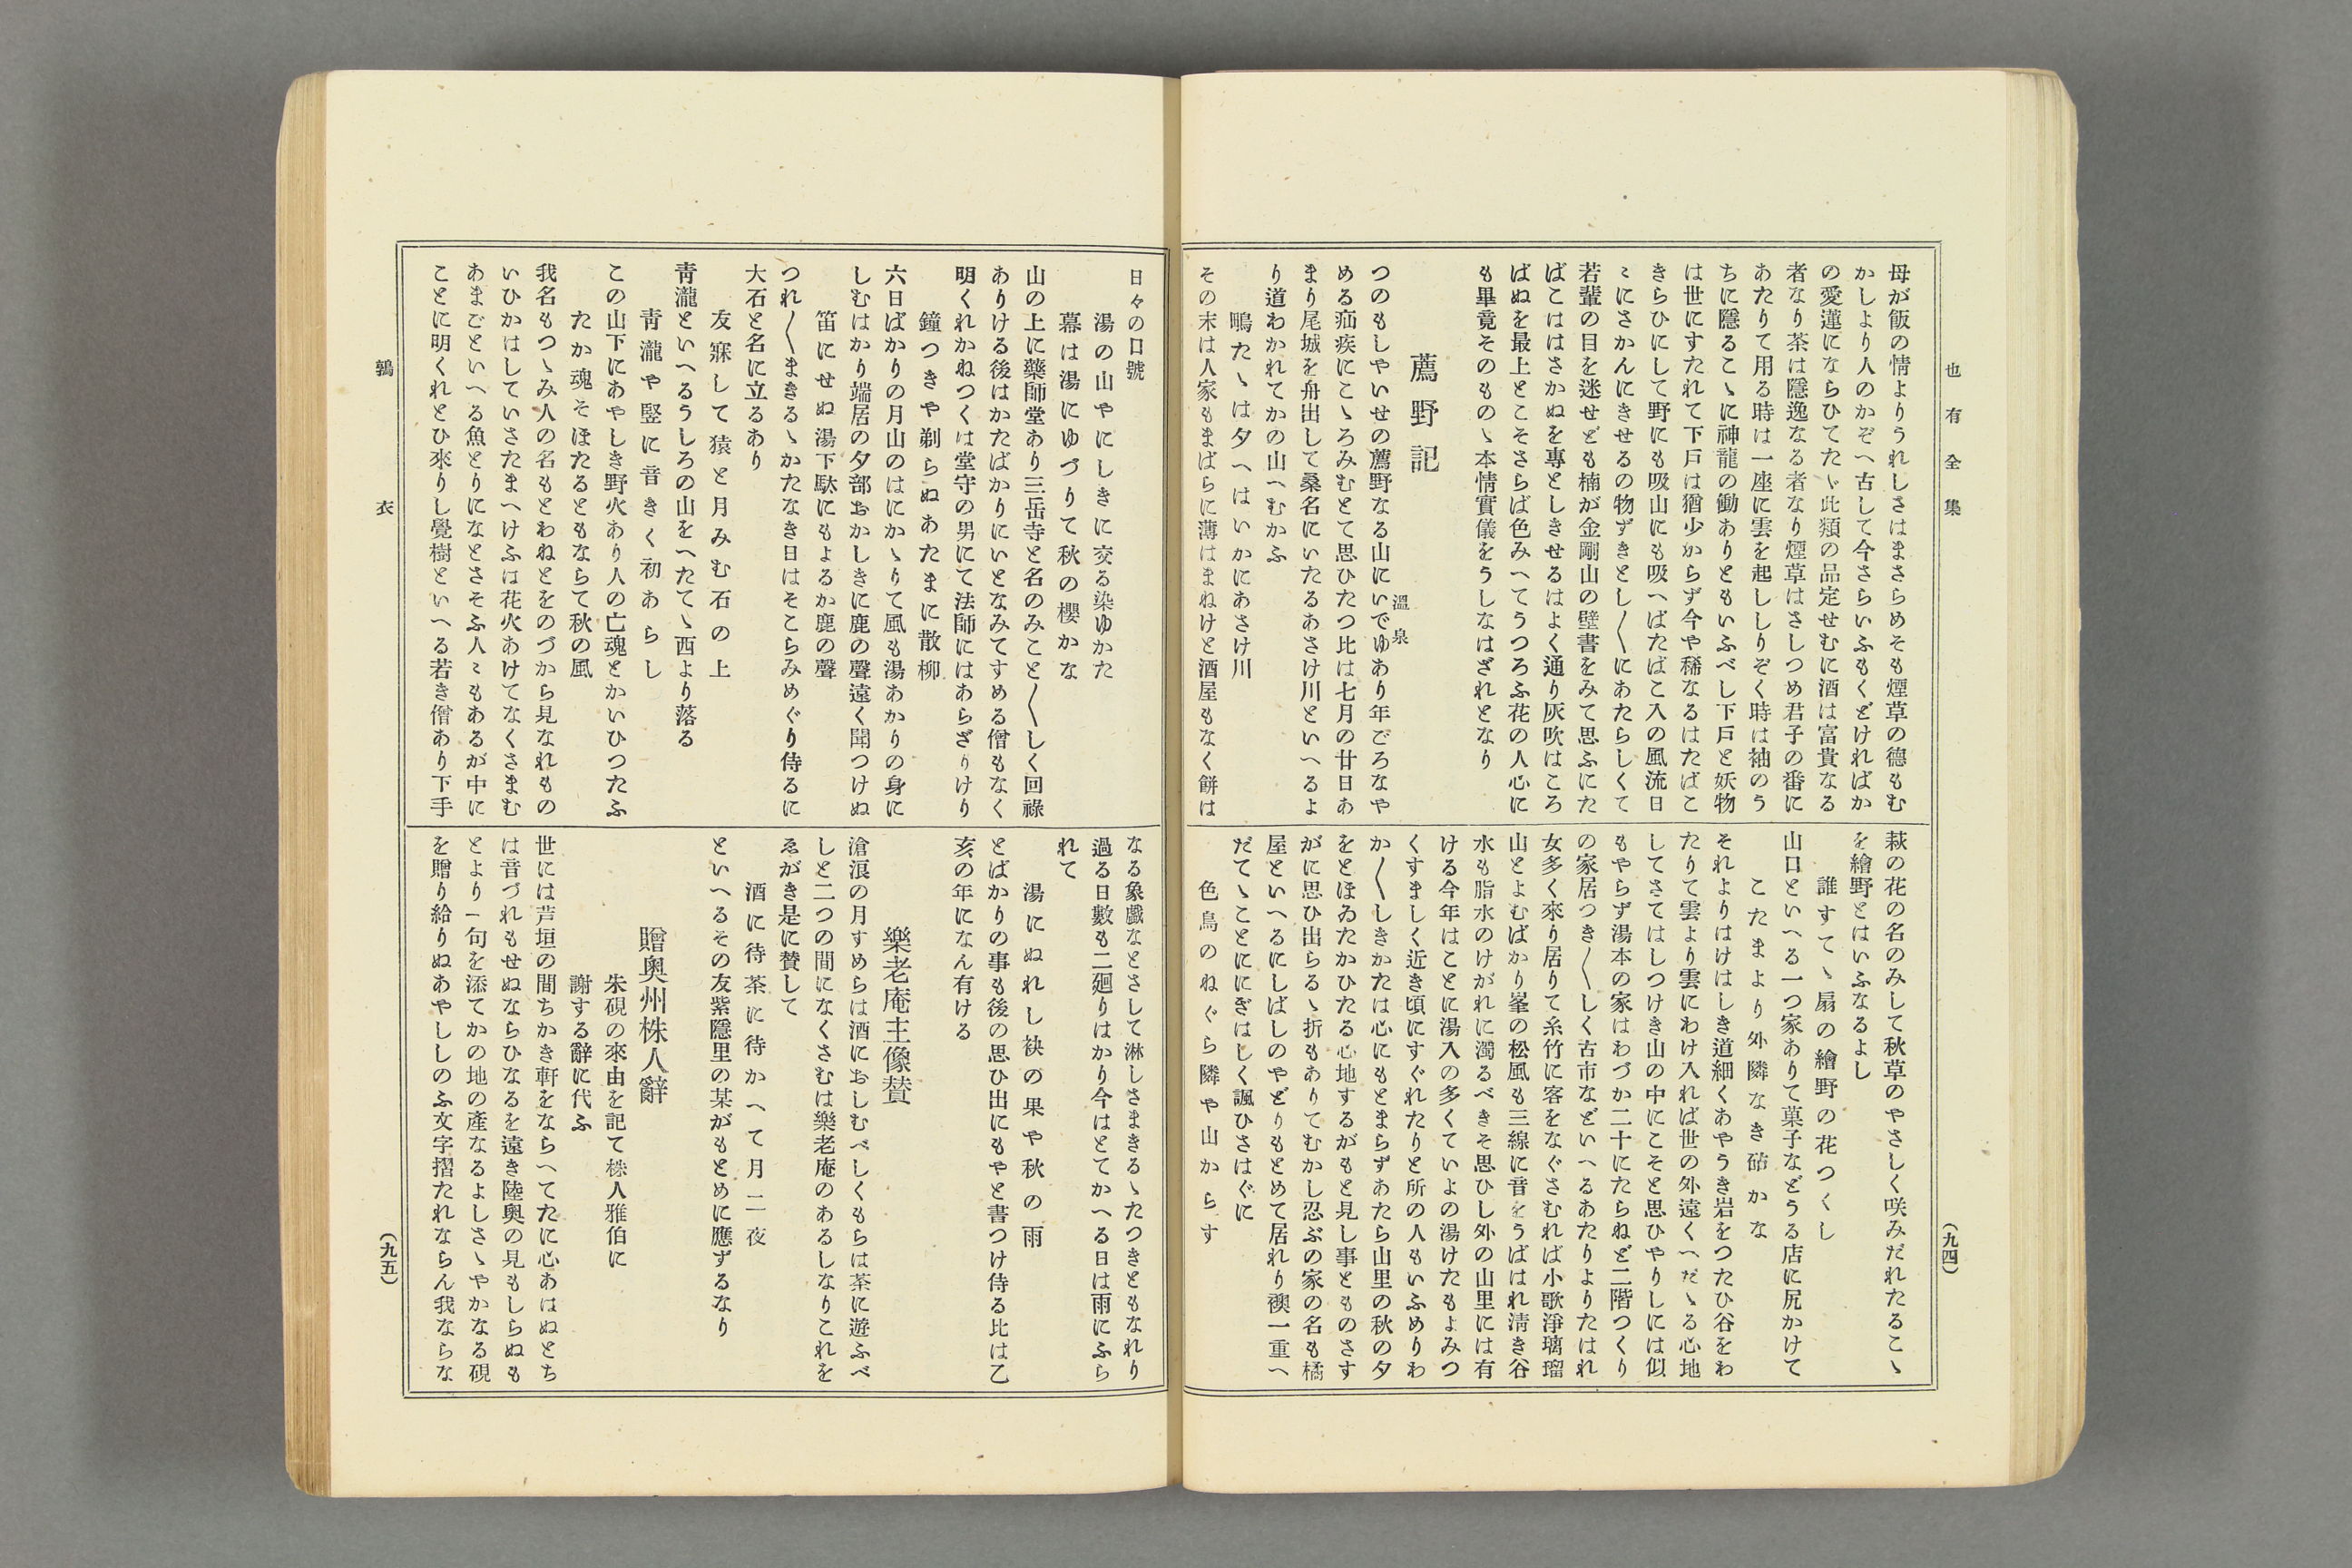 也有全集
(九四)
母が飯の情よりうれしさはまさらめそも煙草の德もむ
かしより人のかぞへ古して今さらいふもくどければか
の愛蓮にならひてたゞ此類の品定せむに酒は富貴なる
者なり茶は隱逸なる者なり煙草はさしつめ君子の番に
あたりて用る時は一座に雲を起ししりぞく時は袖のう
ちに隱るこゝに神龍の働ありともいふべし下戸と妖物
は世にすたれて下戸は猶少からず今や稀なるはたばこ
きらひにして野にも吸山にも吸へばたばこ入の風流日
々にさかんにきせるの物ずきとし〳〵にあたらしくて
若輩の目を迷せども楠が金剛山の壁書をみて思ふにた
ばこははさかぬを專としきせるはよく通り灰吹はころ
ばぬを最上とこそさらば色みへてうつろふ花の人心に
も畢竟そのものゝ本情實儀をうしなはざれとなり
薦野記
溫泉
つのもしやいせの薦野なる山にいでゆあり年ごろなや
める疝疾にこゝろみむとて思ひたつ比は七月の廿日あ
まり尾城を舟出して桑名にいたるあさけ川といへるよ
り道わかれてかの山へむかふ
鴫たゝは夕へはいかにあさけ川
その末は人家もまばらに薄はまねけと酒屋もなく餅は
萩の花の名のみして秋草のやさしく咲みだれたるこゝ
を繪野とはいふなるよし
誰すてゝ扇の繪野の花つくし
山口といへる一つ家ありて菓子などうる店に尻かけて
こたまより外隣なき砧かな
それよりはけはしき道細くあやうき岩をつたひ谷をわ
たりて雲より雲にわけ入れば世の外遠くへだゝる心地
してさてはしつけき山の中にこそと思ひやりしには似
もやらず湯本の家はわづか二十にたらねど二階つくり
の家居つき〳〵しく古市などいへるあたりよりたはれ
女多く來り居りて糸竹に客をなぐさむれば小歌淨璃瑠
山とよむばかり峯の松風も三線に音をうばはれ淸き谷
水も脂水のけがれに濁るべきそ思ひし外の山里には有
ける今年はことに湯入の多くていよの湯けたもよみつ
くすましく近き頃にすぐれたりと所の人もいふめりわ
か〳〵しきかたは心にもとまらずあたら山里の秋の夕
をとほゐたかひたる心地するがもと見し事とものさす
がに思ひ出らるゝ折もありてむかし忍ぶの家の名も橘
屋といへるにしばしのやどりもとめて居れり襖一重へ
だてゝことににぎはしく諷ひさはぐに
色鳥のねぐら隣や山からす
日々の口號
湯の山やにしきに交る染ゆかた
幕は湯にゆづりて秋の櫻かな
山の上に藥師堂あり三岳寺と名のみこと〳〵しく回祿
ありける後はかたばかりにいとなみてすめる僧もなく
明くれかねつくは堂守の男にて法師にはあらざりけり
鐘つきや剃らぬあたまに散柳
六日ばかりの月山のはにかゝりて風も湯あかりの身に
しむはかり端居の夕部おかしきに鹿の聲遠く聞つけぬ
笛にせぬ湯下駄にもよるか鹿の聲
つれ〳〵まきるゝかたなき日はそこらみめぐり侍るに
大石と名に立るあり
友寐して猿と月みむ石の上
靑瀧といへるうしろの山をへたてゝ西より落る
靑瀧や竪に音きく初あらし
この山下にあやしき野火あり人の亡魂とかいひつたふ
たか魂そほたるともならて秋の風
我名もつゝみ人の名もとわねとをのづから見なれもの
いひかはしていさたまへけふは花火あけてなくさまむ
あまごといへる魚とりになとさそふ人々もあるが中に
ことに明くれとひ來りし覺樹といへる若き僧あり下手
なる象戲なとさして淋しさまきるゝたつきともなれり
過る日數も二廻りはかり今はとてかへる日は雨にふら
れて
湯にぬれし袂の果や秋の雨
とばかりの事も後の思ひ出にもやと書つけ侍る比は乙
亥の年になん有ける
樂老庵主像賛
滄浪の月すめらは酒におしむべしくもらは茶に遊ふべ
しと二つの間になくさむは樂老庵のあるしなりこれを
ゑがき是に賛して
酒に待茶に待かへて月二夜
といへるその友紫隱里の某がもとめに應ずるなり
贈奧州株人辭
朱硯の來由を記て株人雅伯に
謝する辭に代ふ
世には芦垣の間ちかき軒をならへてたに心あはぬとち
は音づれもせぬならひなるを遠き陸奧の見もしらぬも
とより一句を添てかの地の產なるよしさゝやかなる硯
を贈り給りぬあやししのふ文字摺たれならん我ならな
鶉衣
(九五)